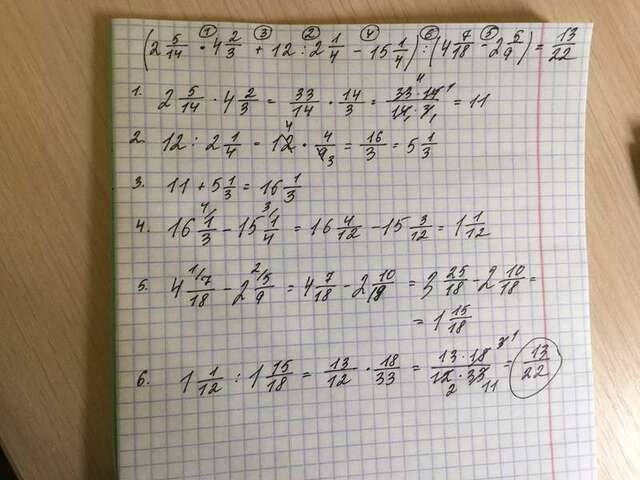 ① ③ ② ④ ⑥ ⑤
(2 5/14 · 4 2/3 + 12 : 2 1/4 − 15 1/4) : (4 7/18 − 2 5/9) = 13/22
1. 2 5/14 · 4 2/3 = 33/14 · 14/3 = 33 · 14/14 · 3 = 11
2. 12 : 2 1/4 = 12 · 4/9 = 16/3 = 5 1/3
3. 11 + 5 1/3 = 16 1/3
4. 16 1/3 − 15 1/4 = 16 4/12 − 15 3/12 = 1 1/12
5. 4 7/18 − 2 5/9 = 4 7/18 − 2 10/18 = 3 25/18 − 2 10/18 =
= 1 15/18
6. 1 1/12 : 1 15/18 = 13/12 · 18/33 = 13 · 18/12 · 33 = 13/22